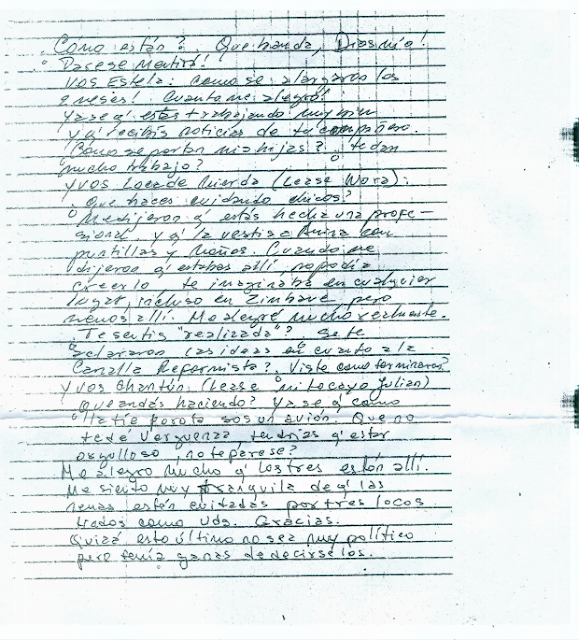 ¿Cómo están?. Que banda, Dios mío!
Parese mentira!
Vos Estela: como se alargaron los
meses! Cuanto me alegro!
Ya se q' estás trabajando muy bien
y q' recibís noticias de tu compañero.
¿Cómo se portan mis hijas? ¿te dan
mucho trabajo?
Y vos Loca de Mierda (Lease Nora):
¿Que haces cuidando chicos?
Me dijeron q' estás hecha una profe-
sional y q' la vestis a Anita con
puntillas y moños. Cuando me
dijeron q' estabas allí, no podía
creerlo te imaginaba en cualquier
lugar, incluso en Zimbave, pero
menos allí. Me alegré mucho realmente.
¿Te sentís "realizada"? ¿Se te
aclararon las ideas en cuanto a la
Canalla Reformista?. Viste como terminaron?
Y vos Chantún (Lease mi tocayo Julian)
¿Que andás haciendo? Ya se q' como
tía porota sos un avión. Que no
te dé verguenza, tendrías q' estar
orgulloso ¿no te parese?
Me alegro mucho q' los tres están allí.
Me siento muy tranquila de q' las
nenas están cuidadas por tres locos
lindos como Uds. Gracias.
Quizá esto último no sea muy político
pero tenía ganas de decírselos.